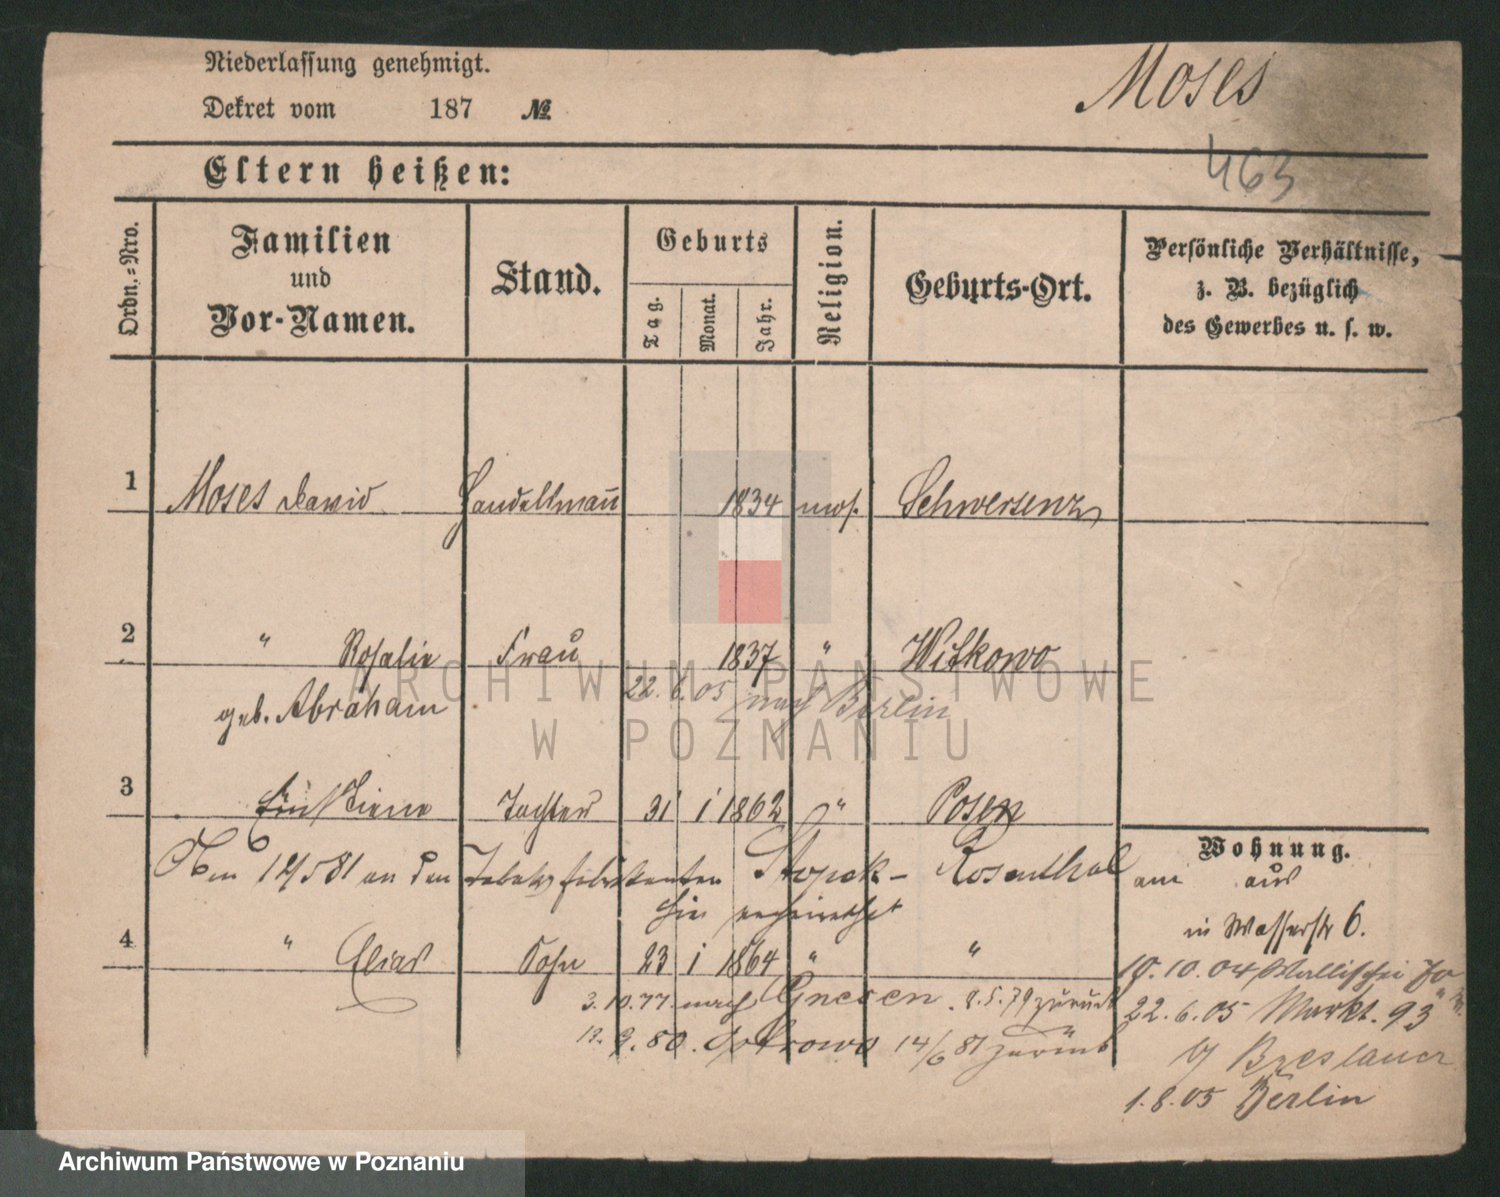 Niederlassung genehmigt.
Dekret vom 187 №
Moses
463
Eltern heißen:
Ordn.=Nro.
Familien
und
Vor-Namen.
Stand.
Geburts
Tag.
Monat.
Jahr.
Religion.
Geburts-Ort.
Persönliche Verhältnisse,
z. B. bezüglich
des Gewerbes u. s. w.
1 Moses David Handelsmann 1834 mos. Schwersenz
2 " Rosalie Frau 1837 " Witkowo
geb. Abraham
22.6.05 nach Berlin
3 Tochter 31 1 1862 " Posen
Wohnung.
an den Rosenthal
hier verheirathet
in Wasserstr 6.
4 " Elias Sohn 23 1 1864 " "
10.04
3.10.77 nach Gnesen. 8.5.79 zurück
22.6.05 Markt 93
9.80. Ostrowo 14/6 81 zurück
b/ Breslauer
1.8.05 Berlin
ARCHIWUM PAŃSTWOWE
W POZNANIU
Archiwum Państwowe w Poznaniu